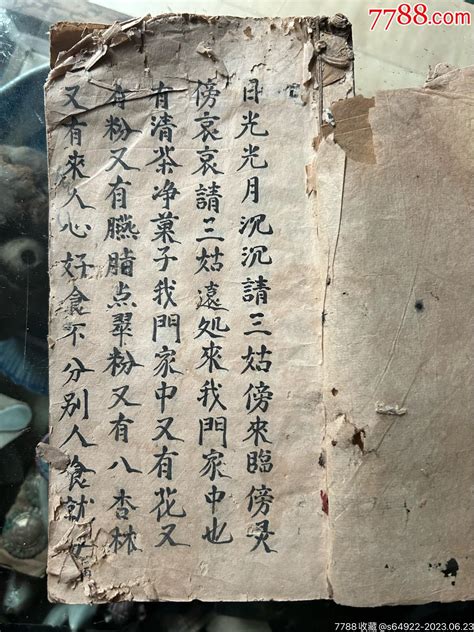 7788.com
目光光月沉沉請三姑傍來臨傍灵
傍哀哀請三姑遠処來我門家中也
有清茶净菓子我門家中又有花又
有粉又有臙脂点翠粉又有八杏林
又有來人心好食不分别人食就
7788收藏@s64922-2023.06.23